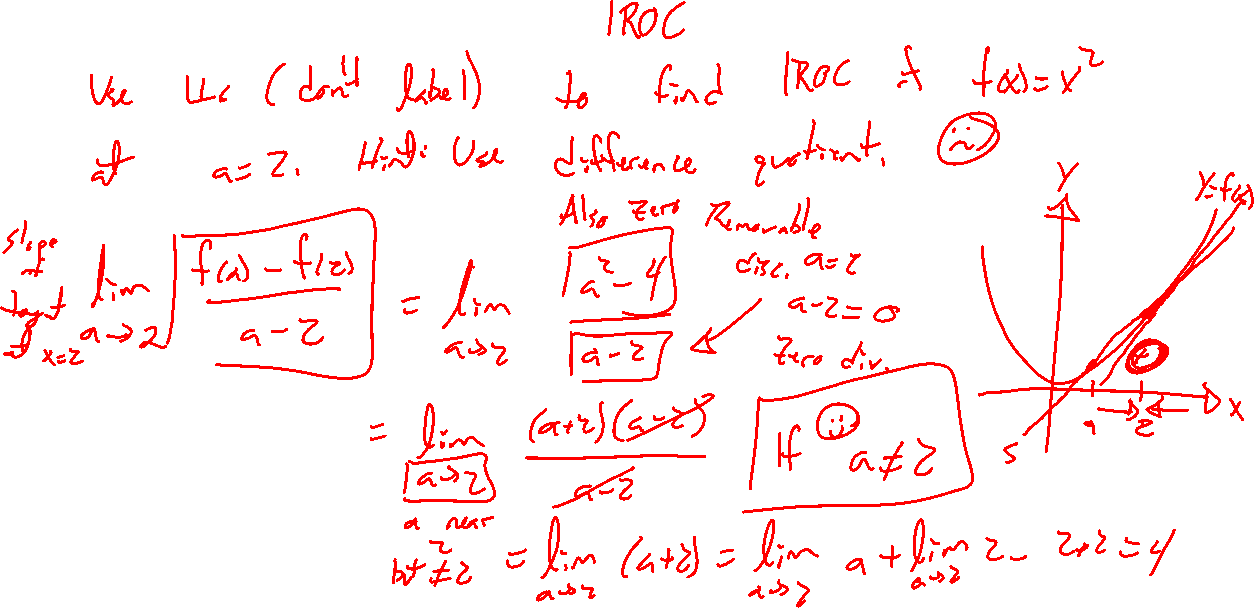 IROC
Use LLs (don't label) to find IROC of f(x)=x²
at a=2. Hint: Use difference quotient.
slope of tangt at x=2
lim a→2 f(a) - f(2) / a-2 = lim a→2 a²-4 / a-2
Also zero
Removable
disc. a=2
a-2=0
Zero div.
= lim a→2 (a+2)(a-2) / a-2
a near 2
but ≠2
If a≠2
= lim a→2 (a+2) = lim a→2 a + lim a→2 2 = 2+2=4
Y
Y=f(x)
a
2
X
S